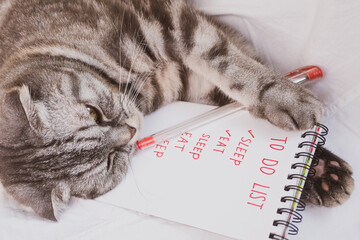 TO DO LIST
✓EAT
✓SLEEP
EAT
SLEEP
EAT